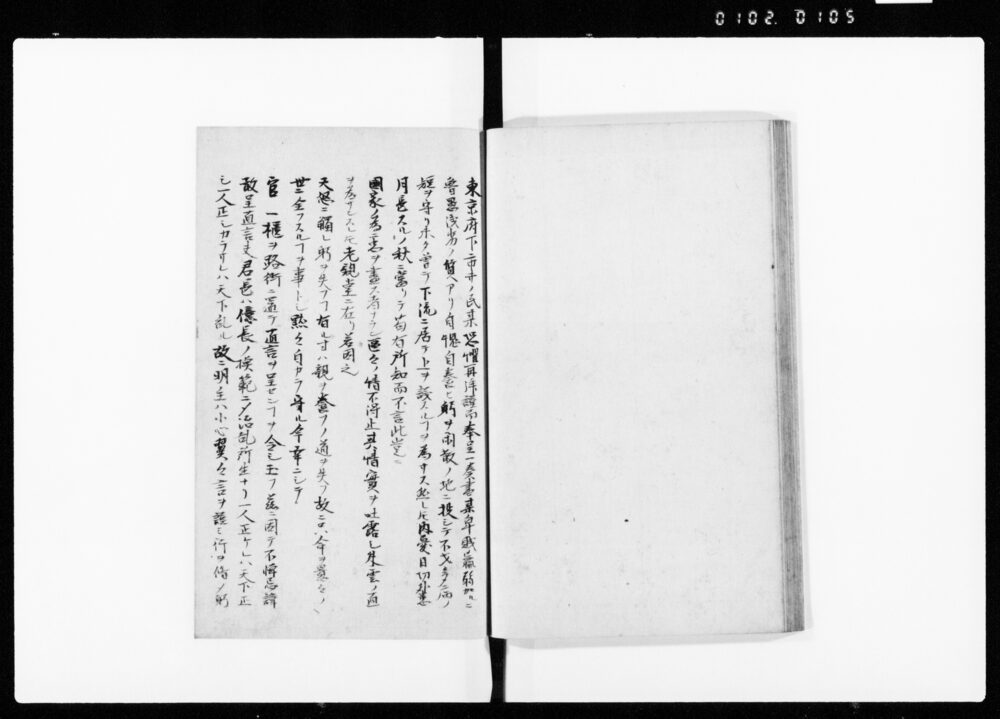 0102. 0105
東京府下市井ノ民某恐懼再拝謹而奉呈一奏書某卑賎羸弱加ルニ
魯愚浅劣ノ質ヘアリ自愧自ヒ躬ヲ閑散ノ地ニ投シテ不
短ヲ守リ曽テ下流ニ居テ上ヲ議スルヿヲ為サス然レ𪜈内憂日切外患
月長スルノ秋ニ當リテ苟有所知而不言此豈ニ
國家ノ為ニ忠ヲ盡ス者ナラン區々ノ情不得止其情實ヲ吐露シ朱雲ノ直
ヲ為サントスレ𪜈老親堂ニ在リ若因之
天怒ニ觸レ躬ヲ失フヿ有ル寸ハ親ヲ養フノ道ヲ失フ故ニ口
世ニ全フスルヿヲ事トシ黙々自カラ守ル今幸ニシテ
官一櫃ヲ路街ニ置テ直言ヲ呈センヿヲ令シ玉フ茲ニ因テ不憚忌諱
敢呈直言夫君長ハ億長ノ模範ニメ治乱所生ナリ一人正ケレハ天下正
シ一人正シカラサレハ天下乱ル故ニ明主ハ小心翼々言ヲ謹ミ行ヲ脩メ躬